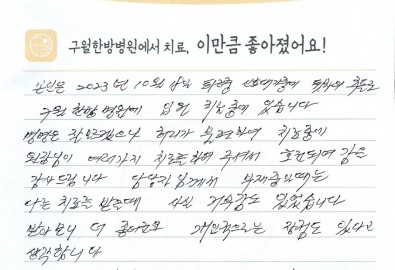 구월한방병원에서 치료, 이만큼 좋아졌어요!
본인은 2023년 10월
구월 한방 병원에 입원 치료중에 있습니다
병명은 잘 모르겠으나 허리가 불편하여 치료중에
원장님이 여러가지 치료를 해 주셔서 호전되어 감을
감사드립니다 담당 부재중일때는
나는 치료를 받는데 사실 거부감도 있었습니다
받다 보니 더 좋아진 개인적으로는 장점도 있다고
생각합니다